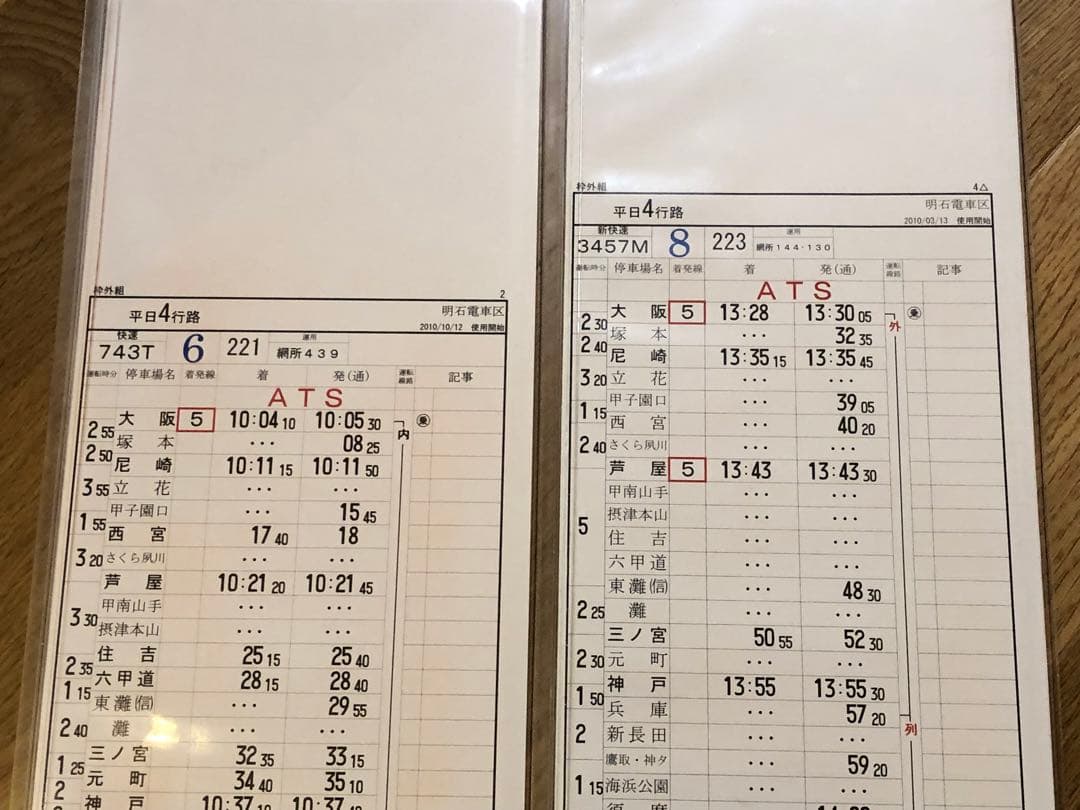 枠外組 2
平日4行路 明石電車区
2010/10/12 使用開始
快速 運用
743T 6 221 網所439
運転時分 停車場名 着発線 着 発(通) 運転線路 記事
ATS
大阪 5 10:04 10 10:05 30 内 乗
2 55
塚本 ・・・ 08 25
2 50
尼崎 10:11 15 10:11 50
3 55 立花 ・・・ ・・・
甲子園口 ・・・ 15 45
1 55
西宮 17 40 18
3 20 さくら夙川 ・・・ ・・・
芦屋 10:21 20 10:21 45
甲南山手 ・・・ ・・・
3 30
摂津本山 ・・・ ・・・
住吉 25 15 25 40
2 35
六甲道 28 15 28 40
1 15
東灘(信) ・・・ 29 55
2 40 灘 ・・・ ・・・
三ノ宮 32 35 33 15
1 25
元町 34 40 35 10
2
神戸 10:37 10 10:37
枠外組 4△
平日4行路 明石電車区
2010/03/13 使用開始
新快速 運用
3457M 8 223 網所144・130
運転時分 停車場名 着発線 着 発(通) 運転線路 記事
ATS
大阪 5 13:28 13:30 05 外 乗
2 30
塚本 32 35
2 40
尼崎 13:35 15 13:35 45
3 20 立花 ・・・ ・・・
甲子園口 ・・・ 39 05
1 15
西宮 ・・・ 40 20
2 40 さくら夙川 ・・・ ・・・
芦屋 5 13:43 13:43 30
甲南山手 ・・・ ・・・
摂津本山 ・・・ ・・・
5
住吉 ・・・ ・・・
六甲道 ・・・ ・・・
東灘(信) 48 30
2 25 灘 ・・・ ・・・
三ノ宮 50 55 52 30
2 30 元町 ・・・ ・・・
神戸 13:55 13:55 30
1 50
兵庫 ・・・ 57 20
2 新長田 ・・・ ・・・ 列
鷹取・神タ ・・・ 59 20
1 15 海浜公園 ・・・ ・・・
須磨